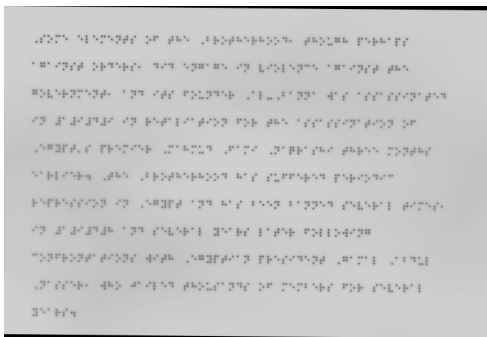 ⠠⠎⠕⠍⠑ ⠑⠇⠑⠍⠑⠝⠞⠎ ⠕⠋ ⠞⠓⠑ ⠠⠃⠗⠕⠞⠓⠑⠗⠓⠕⠕⠙⠂ ⠞⠓⠕⠥⠛⠓ ⠏⠑⠗⠓⠁⠏⠎
⠁⠛⠁⠊⠝⠎⠞ ⠕⠗⠙⠑⠗⠎⠂ ⠙⠊⠙ ⠑⠝⠛⠁⠛⠑ ⠊⠝ ⠧⠊⠕⠇⠑⠝⠉⠑ ⠁⠛⠁⠊⠝⠎⠞ ⠞⠓⠑
⠛⠕⠧⠑⠗⠝⠍⠑⠝⠞⠂ ⠁⠝⠙ ⠊⠞⠎ ⠋⠕⠥⠝⠙⠑⠗ ⠠⠁⠇⠤⠠⠃⠁⠝⠝⠁ ⠺⠁⠎ ⠁⠎⠎⠁⠎⠎⠊⠝⠁⠞⠑⠙
⠊⠝ ⠼⠁⠼⠊⠼⠙⠼⠊ ⠊⠝ ⠗⠑⠞⠁⠇⠊⠁⠞⠊⠕⠝ ⠋⠕⠗ ⠞⠓⠑ ⠁⠎⠎⠁⠎⠎⠊⠝⠁⠞⠊⠕⠝ ⠕⠋
⠠⠑⠛⠽⠏⠞⠄⠎ ⠏⠗⠑⠍⠊⠑⠗ ⠠⠍⠁⠓⠍⠥⠙ ⠠⠋⠁⠍⠊ ⠠⠝⠁⠟⠗⠁⠎⠓⠊ ⠞⠓⠗⠑⠑ ⠍⠕⠝⠞⠓⠎
⠑⠁⠗⠇⠊⠑⠗⠲ ⠠⠞⠓⠑ ⠠⠃⠗⠕⠞⠓⠑⠗⠓⠕⠕⠙ ⠓⠁⠎ ⠎⠥⠋⠋⠑⠗⠑⠙ ⠏⠑⠗⠊⠕⠙⠊⠉
⠗⠑⠏⠗⠑⠎⠎⠊⠕⠝ ⠊⠝ ⠠⠑⠛⠽⠏⠞ ⠁⠝⠙ ⠓⠁⠎ ⠃⠑⠑⠝ ⠃⠁⠝⠝⠑⠙ ⠎⠑⠧⠑⠗⠁⠇ ⠞⠊⠍⠑⠎⠂
⠊⠝ ⠼⠁⠼⠊⠼⠙⠼⠓ ⠁⠝⠙ ⠎⠑⠧⠑⠗⠁⠇ ⠽⠑⠁⠗⠎ ⠇⠁⠞⠑⠗ ⠋⠕⠇⠇⠕⠺⠊⠝⠛
⠉⠕⠝⠋⠗⠕⠝⠞⠁⠞⠊⠕⠝⠎ ⠺⠊⠞⠓ ⠠⠑⠛⠽⠏⠞⠊⠁⠝ ⠏⠗⠑⠎⠊⠙⠑⠝⠞ ⠠⠛⠁⠍⠁⠇ ⠠⠁⠃⠙⠥⠇
⠠⠝⠁⠎⠎⠑⠗⠂ ⠺⠓⠕ ⠚⠁⠊⠇⠑⠙ ⠞⠓⠕⠥⠎⠁⠝⠙⠎ ⠕⠋ ⠍⠑⠍⠃⠑⠗⠎ ⠋⠕⠗ ⠎⠑⠧⠑⠗⠁⠇
⠽⠑⠁⠗⠎⠲